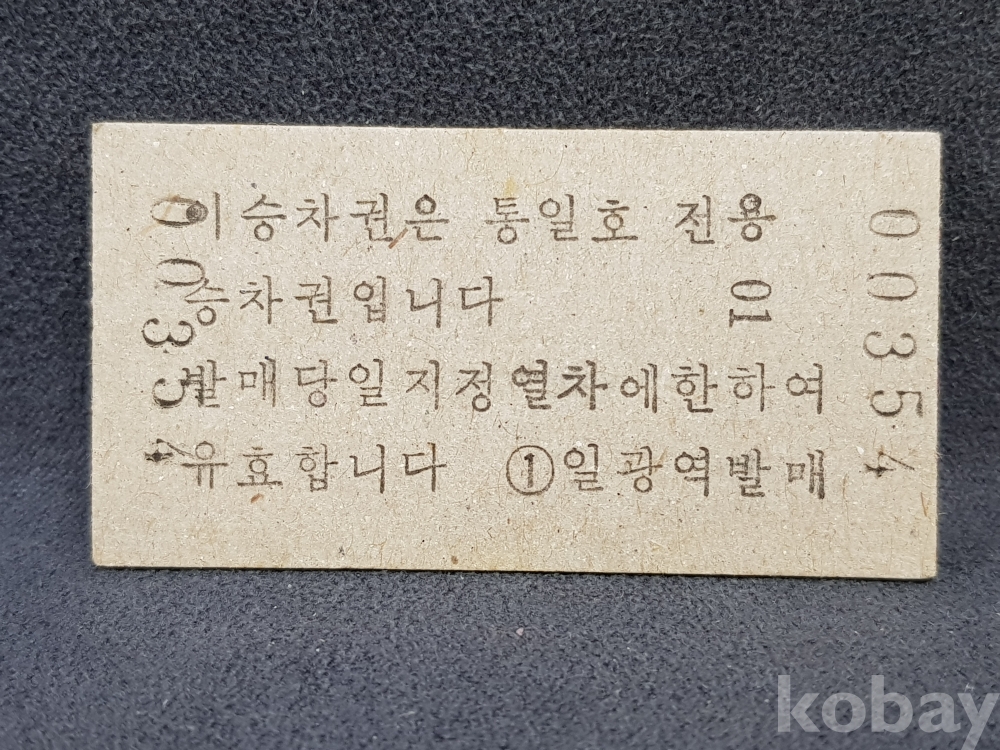 이승차권은 통일호 전용
승차권입니다 01
발매당일지정열차에한하여
유효합니다 ①일광역발매
00354
00354
kobay